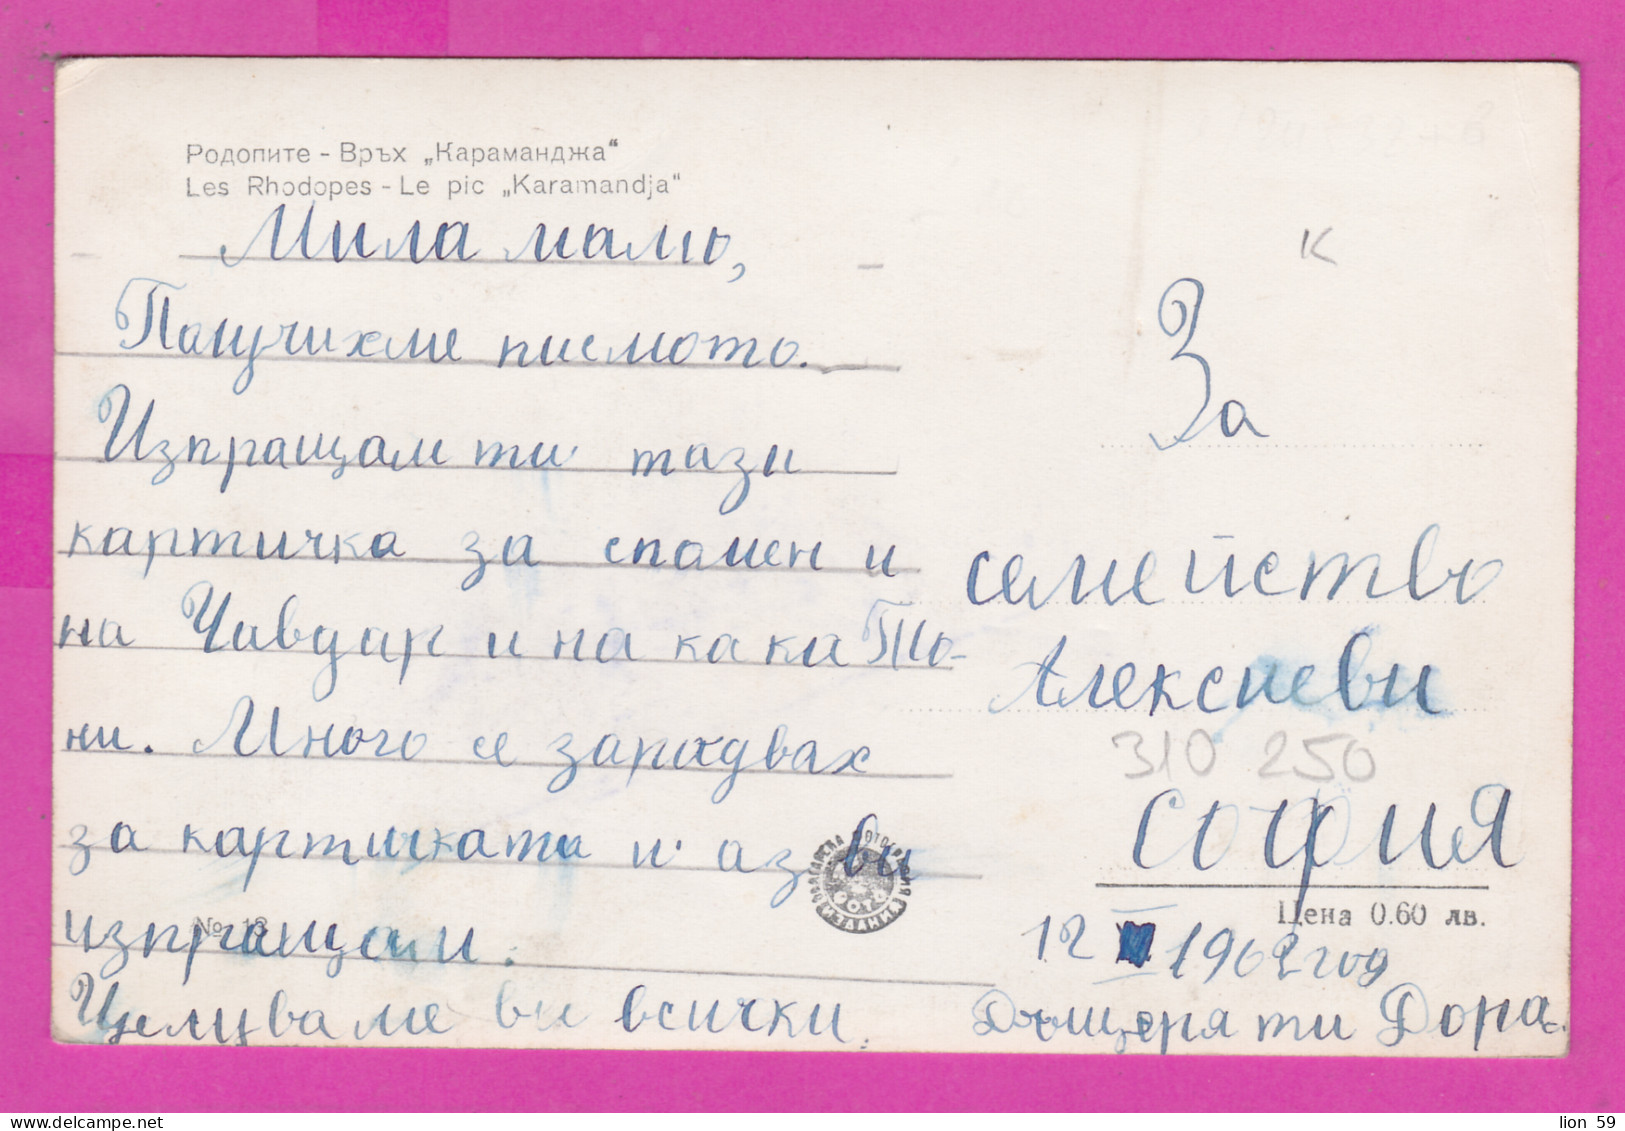 Родопите - Връх „Караманджа“
Les Rhodopes - Le pic „Karamandja“
Мила мамо,
Получихме писмото.
Изпращам ти тази
картичка за спомен и
на Чавдар и на кака То-
ни. Много се зарадвах
за картичката и аз ви
изпращам.
Целуваме ви всички.
№ 13
К
За
семейство
Алексиеви
310 250
СОФИЯ
Цена 0.60 лв.
12 1962 год
Дъщеря ти Дора.
lion 59